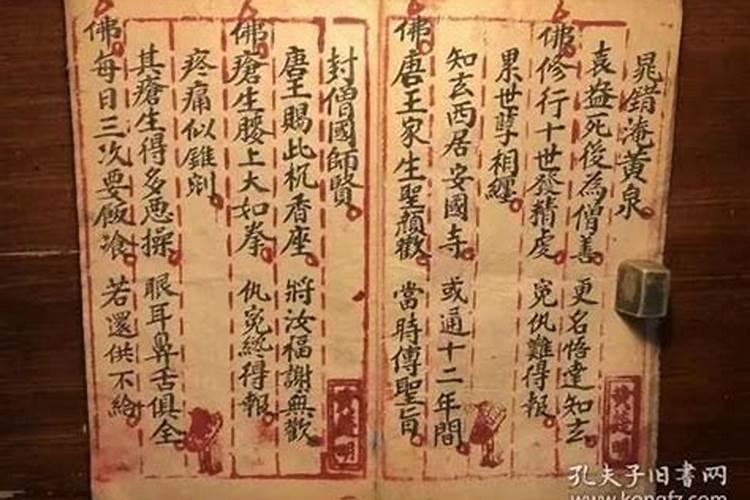 晁錯淹黃泉
袁盎死後為僧善 更名悟達知玄
佛修行十世發精虔 冤仇難得報
累世孽相纏
知玄西居安國寺 或通十二年間
佛唐王家生聖顏歡 當時傳聖旨
封僧國師賢
唐王賜此杌香座 將汝福謝無歡
佛瘡生腰上大如拳 仇冤終得報
疼痛似錐剜
其瘡生得多恶操 眼耳鼻舌俱全
佛每日三次要飯飡 若還供不給
孔夫子旧書网